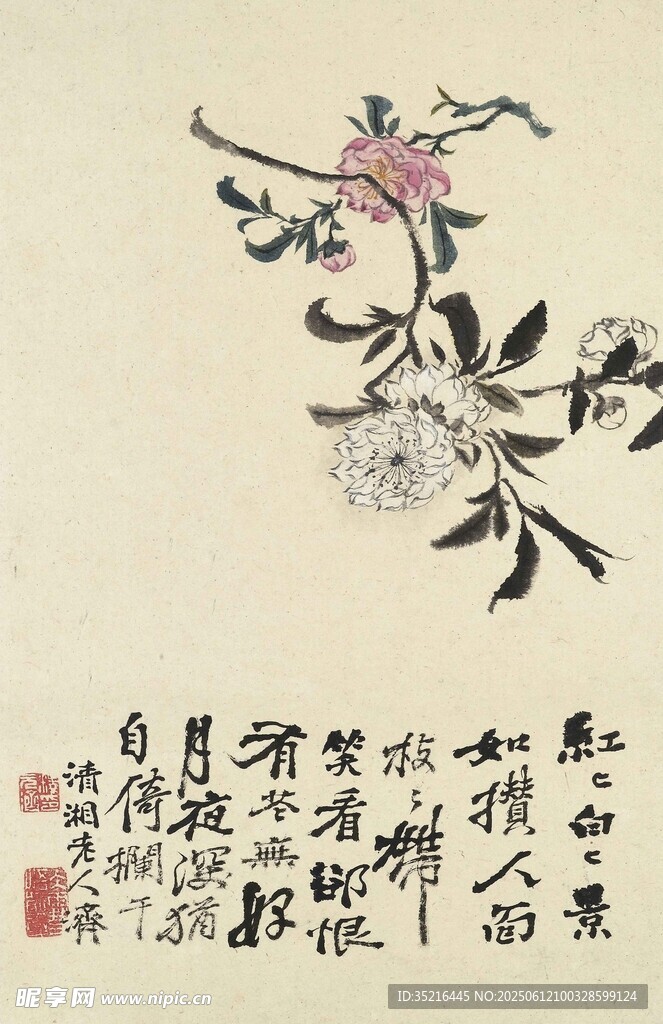 紅〻白〻景
如攢人面
枝〻帶
笑看卻恨
有花無好
月夜深猶
自倚攔干
清湘老人濟
昵享网 www.nipic.cn
ID:35216445 NO:20250612100328599124